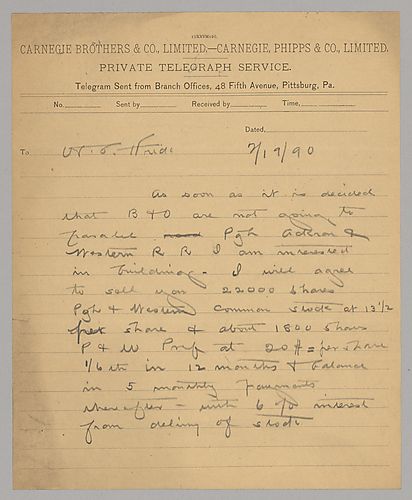 CARNEGIE BROTHERS & CO., LIMITED.—CARNEGIE, PHIPPS & CO., LIMITED.
PRIVATE TELEGRAPH SERVICE.
Telegram Sent from Branch Offices, 48 Fifth Avenue, Pittsburg, Pa.
No. Sent by Received by Time,
Dated,
To 7/19/90
As soon as it is decided
that B & O are not going to
paralel Pgh Ackron &
Western R R I am interested
in building - I will agree
to sell you 22000 shares
Pgh & Western common stock at 13 1/2
per share & about 1800 shares
P & W Pref at 20 $ = per share
1/6 th in 12 months & balance
in 5 monthly payments
thereafter - with 6 % interest
from delivy of stock